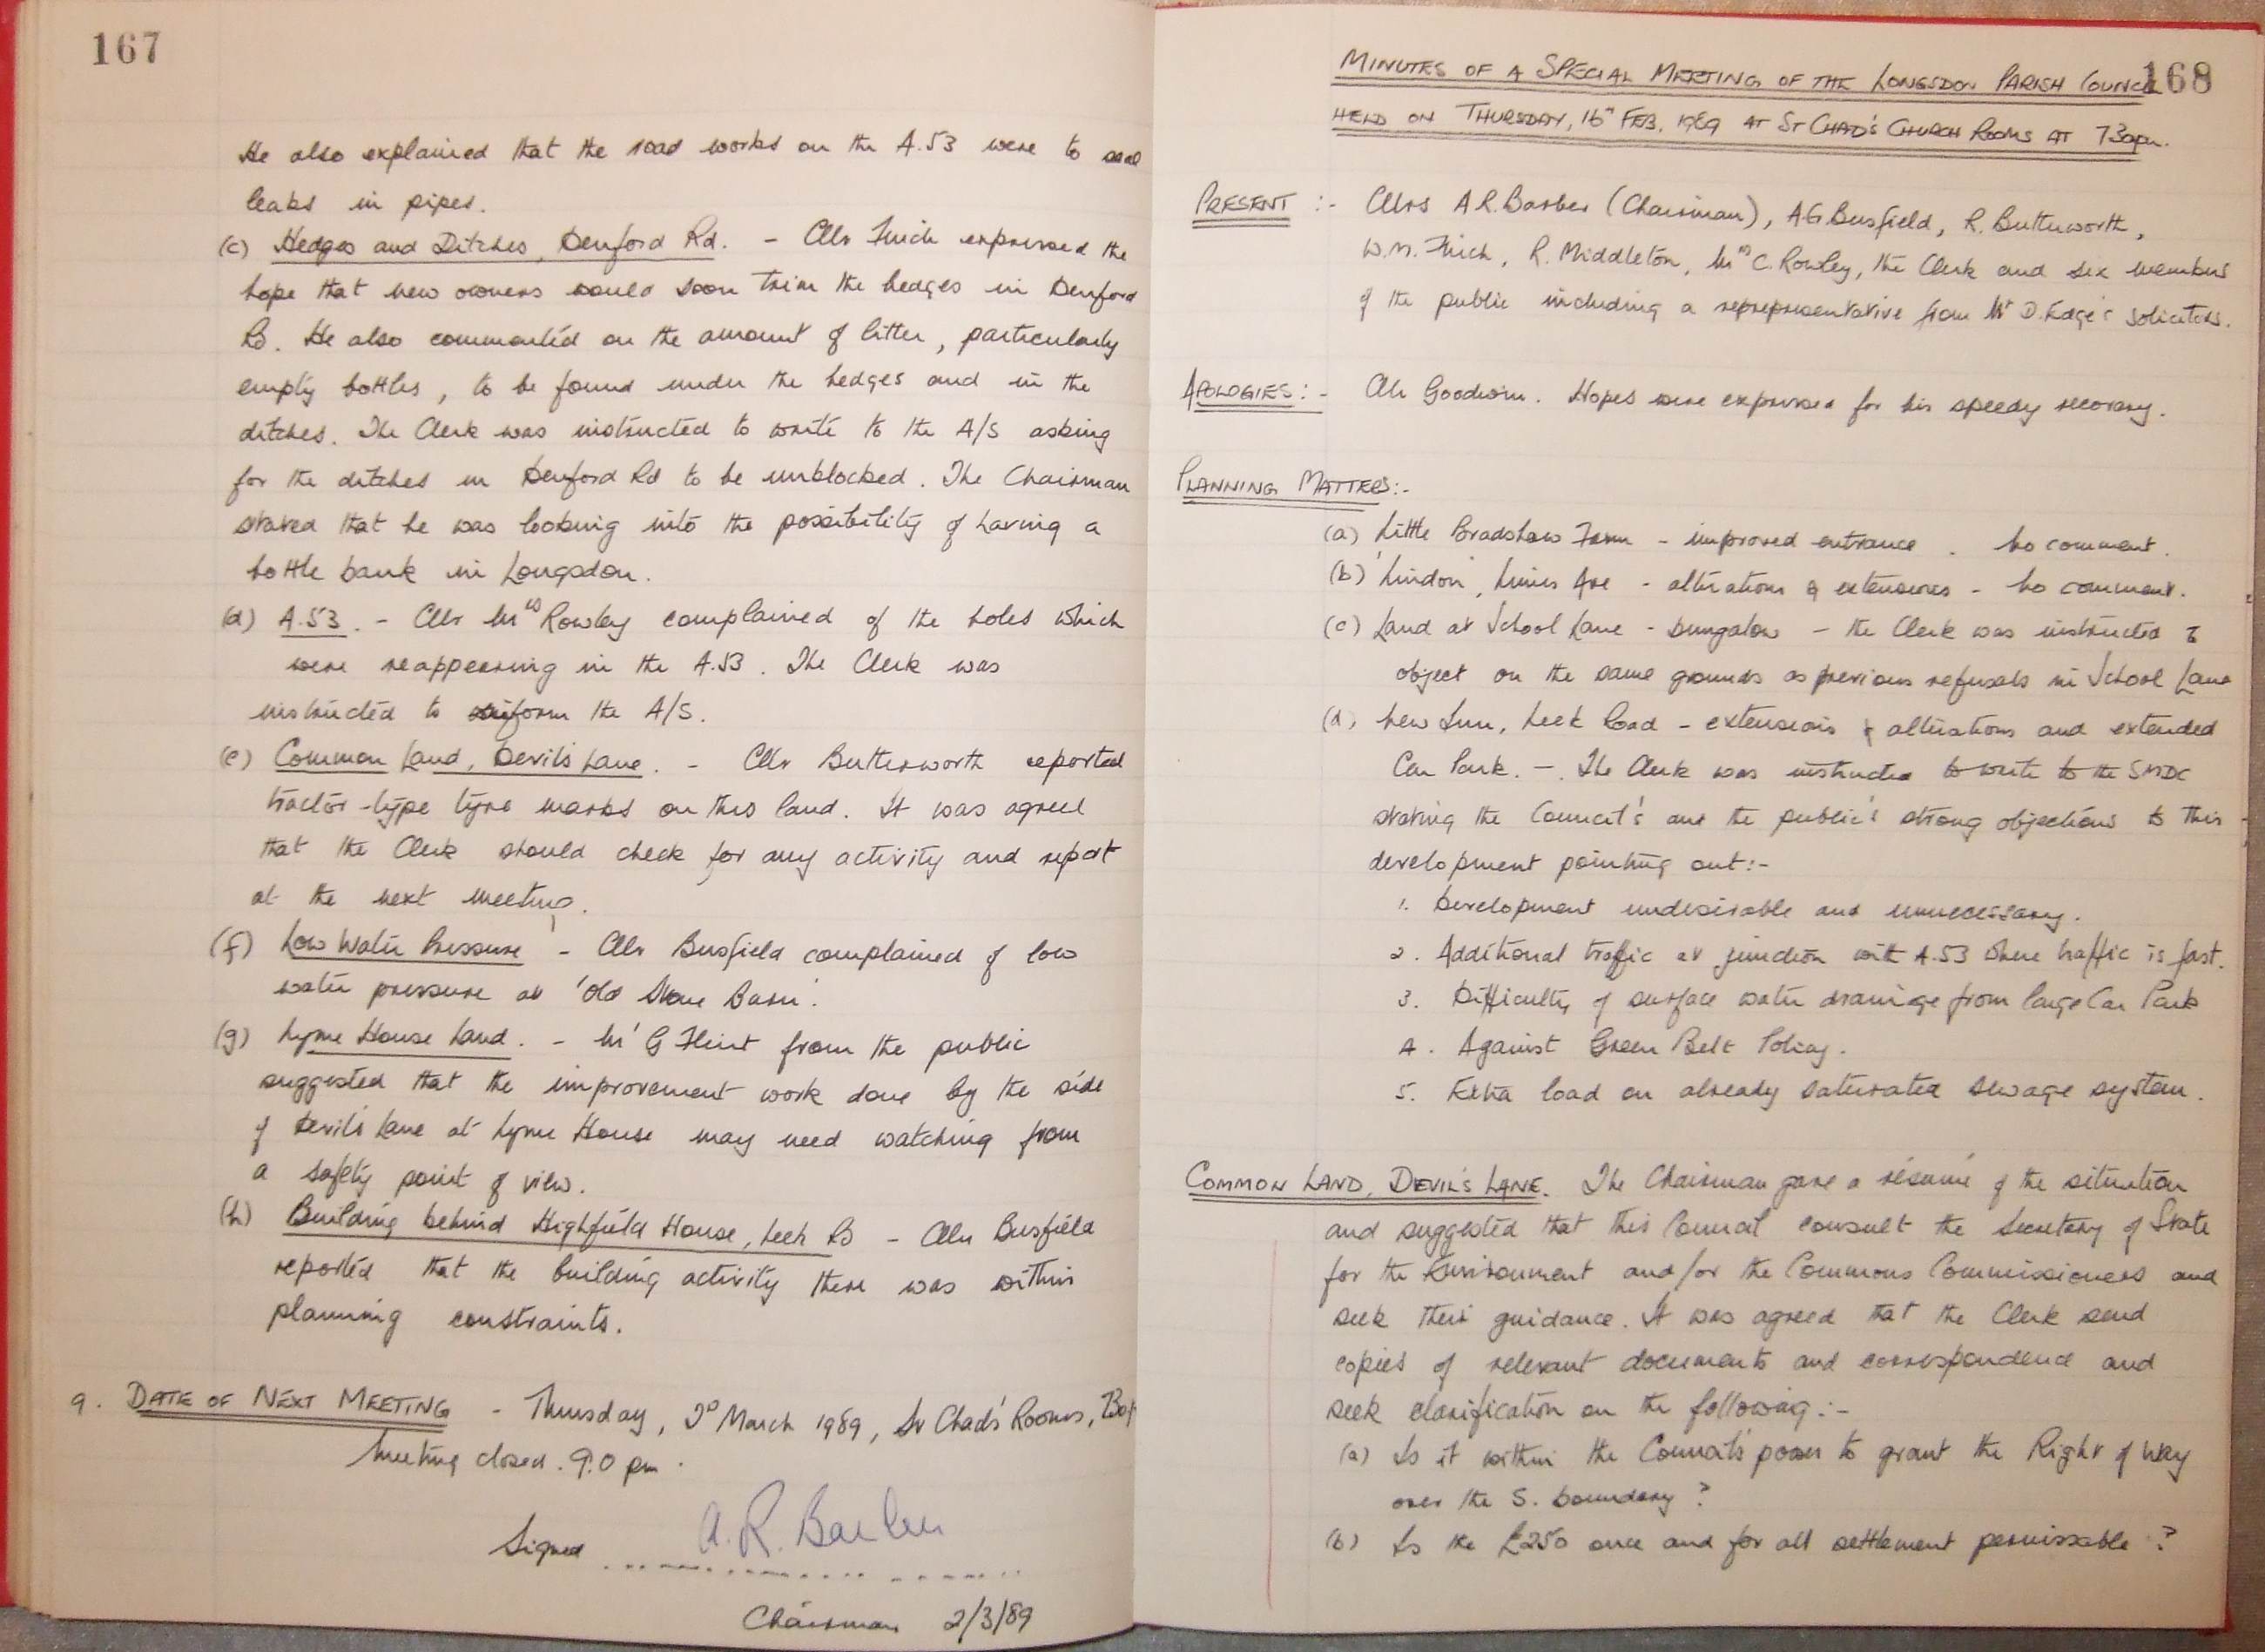 167
He also explained that the road works on the A.53 were to seal
leaks in pipes.
(c) Hedges and Ditches, Denford Rd. - Cllr Finch expressed the
hope that new owners would soon trim the hedges in Denford
Rd. He also commented on the amount of litter, particularly
empty bottles, to be found under the hedges and in the
ditches. The Clerk was instructed to write to the A/S asking
for the ditches in Denford Rd to be unblocked. The Chairman
stated that he was looking into the possibility of having a
bottle bank in Longsdon.
(d) A.53. - Cllr Mrs Rowley complained of the holes which
were reappearing in the A.53. The Clerk was
instructed to inform the A/S.
(e) Common Land, Devil's Lane. - Cllr Butterworth reported
tractor-type tyre marks on this land. It was agreed
that the Clerk should check for any activity and report
at the next meeting.
(f) Low Water Pressure - Cllr Busfield complained of low
water pressure at 'Old Stone Barn'.
(g) Lyme House Land. - Mr G Flint from the public
suggested that the improvement work done by the side
of Devil's Lane at Lyme House may need watching from
a safety point of view.
(h) Building behind Highfield House, Leek Rd - Cllr Busfield
reported that the building activity there was within
planning constraints.
9. DATE OF NEXT MEETING - Thursday, 2nd March 1989, St Chad's Rooms, 7.30p
Meeting closed. 9.0 pm.
Signed A. R. Barber
Chairman 2/3/89
168
MINUTES OF A SPECIAL MEETING OF THE LONGSDON PARISH COUNCIL
HELD ON THURSDAY, 16th FEB. 1989 AT ST CHAD'S CHURCH ROOMS AT 7.30pm.
PRESENT :- Cllrs A R. Barber (Chairman), A G Busfield, R. Butterworth,
W.M. Finch, R. Middleton, Mrs C. Rowley, the Clerk and six members
of the public including a reprepresentative from Mr D. Edge's solicitors.
APOLOGIES :- Cllr Goodwin. Hopes were expressed for his speedy recovery.
PLANNING MATTERS:-
(a) Little Bradshaw Farm - improved entrance. No comment.
(b) 'Lindon', Limes Ave - alterations & extensions - No comment.
(c) Land at School Lane - bungalow - the Clerk was instructed to
object on the same grounds as previous refusals in School Lane
(d) New Inn, Leek Road - extensions & alterations and extended
Car Park. - The Clerk was instructed to write to the SMDC
stating the Council's and the public's strong objections to this
development pointing out:-
1. Development undesirable and unnecessary.
2. Additional traffic at junction with A.53 where traffic is fast.
3. Difficulty of surface water drainage from large Car Park
4. Against Green Belt Policy.
5. Extra load on already saturated sewage system.
COMMON LAND, DEVIL'S LANE. The Chairman gave a résumé of the situation
and suggested that this Council consult the Secretary of State
for the Environment and/or the Commons Commissioners and
seek their guidance. It was agreed that the Clerk send
copies of relevant documents and correspondence and
seek clarification on the following:-
(a) Is it within the Council's power to grant the Right of Way
over the S. boundary?
(b) Is the £250 once and for all settlement permissable?